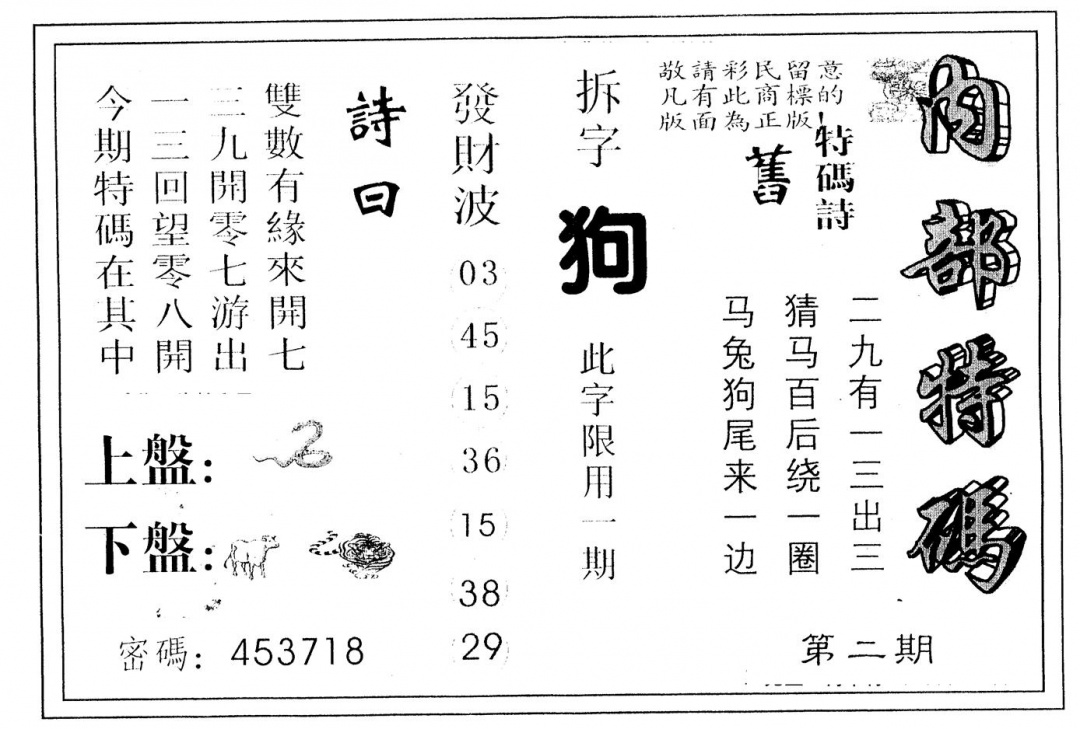 内部特碼
敬請彩民留意
凡有此商標的
版面為正版
特碼詩
舊
二九有一三出三
猜马百后绕一圈
马兔狗尾来一边
第二期
拆字
狗
此字限用一期
發財波
03
45
15
36
15
38
29
詩曰
雙數有緣來開七
三九開零七游出
一三回望零八開
今期特碼在其中
上盤：
下盤：
密碼：453718